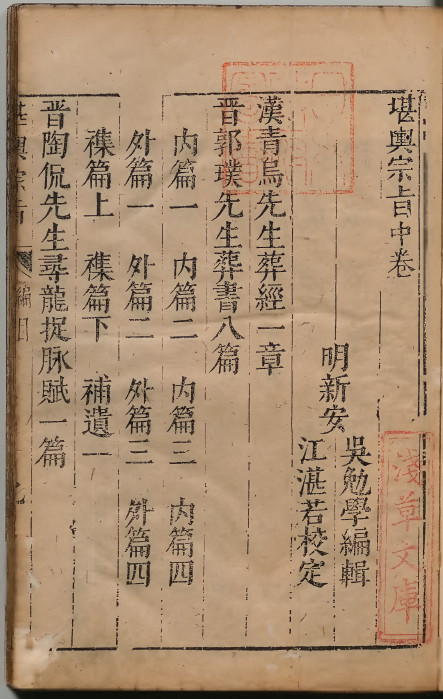 堪輿宗旨中卷
明新安
吳勉學編輯
江湛若校定
漢青烏先生葬經一章
晉郭璞先生葬書八篇
內篇一 內篇二 內篇三 內篇四
外篇一 外篇二 外篇三 外篇四
襍篇上 襍篇下 補遺一
晉陶侃先生尋龍捉脉賦一篇
堪輿宗旨
淺草文庫